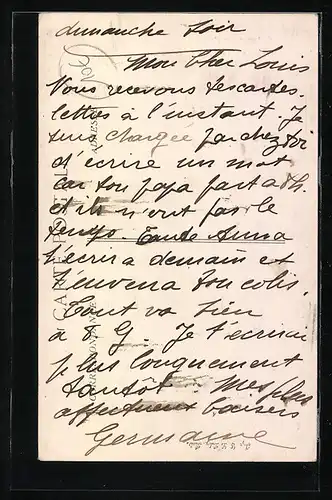 dimanche soir
Mon cher Louis
Nous recevons tes cartes
lettres à l'instant. Je
suis chargée par chez toi
d'écrire un mot
car ton papa part à Th.
et ils n'ont pas le
temps. Tante Anna
t'écrira demain et
t'enverra ton colis.
Tout va bien
à G. Je t'écrirai
plus longuement
tantôt. Mes plus
affectueux baisers
Germaine
CARTE POSTALE
CORRESPONDANCE
ADRESSE